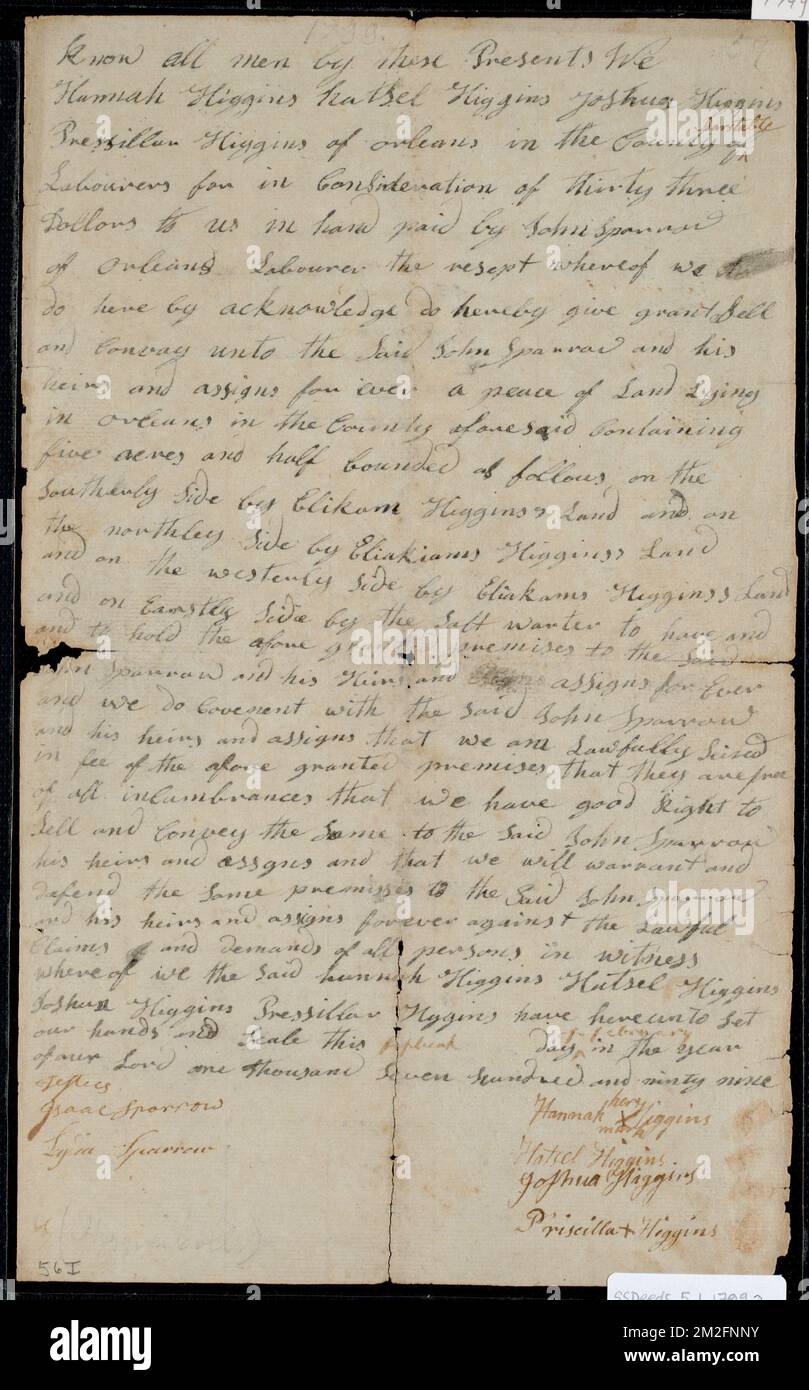 1799.
Know all men by these Presents We
Hannah Higgins Hatsel Higgins Joshua Higgins
Barstable
Pressillar Higgins of orleans in the County of
Labourers for in Consideration of thirty three
Dollors to us in hand paid by John Sparrow
of Orleans Labourer the resept whereof we
do here by acknowledge do hereby give grant Sell
and Convay unto the Said John Sparrow and his
heirs and assigns for ever a peace of Land Lying
in orleans in the County afore said Containing
five acres and half bounded as follows on the
Southerly Side by Elikam Higgins's Land and on
the northley Side by Eliakiams Higginss Land
and on the westerly Side by Eliakams Higginss Land
and on Earstly Side by the Salt warter to have and
and to hold the afore premises to the said
John Sparrow and his Heirs and assigns for Ever
and we do Covenent with the Said John Sparrow
and his heirs and assigns that we am Lawfully Seised
in fee of the afore granted premises that they are free
of all incumbrances that we have good Right to
Sell and Convey the Same to the Said John Sparrow
his heirs and assgns and that we will warrant and
defend the Same premisses to the Said John Sparrow
and his heirs and assigns forever against the Lawful
Claims and demands of all persons in witness
where of we the said hannah Higgins Hatsel Higgins
Joshua Higgins Pressillar Higgins have here unto Set
february
our hands and Seale this day in the year
of our Lord one thousand Seven hundred and ninty nine
Isaac Sparrow
Lyia Sparrow
her
Hannah X Higgins
mark
Hatsel Higgins
Joshua Higgins
Priscilla + Higgins
56I
SSDeeds 5 I 1799 2
alamy
Image ID: 2M2FNNY
www.alamy.com